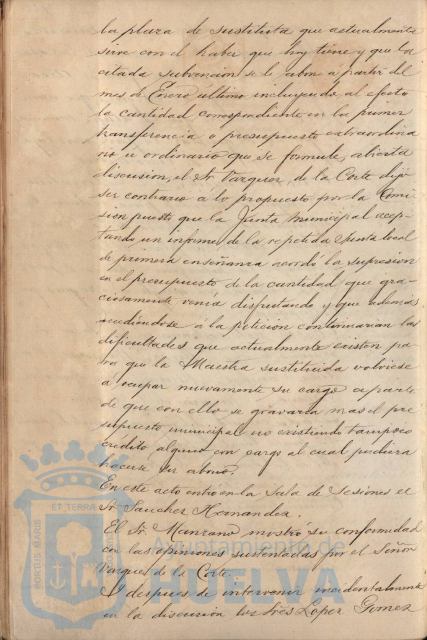 la plaza de sustituta que actualmente
sirve con el haber que hoy tiene y que la
citada subvencion se le abone á partir del
mes de Enero último incluyendo al efecto
la cantidad correspondiente en la primer
transferencia o presupuesto extraordina
rio u ordinario que se formule, abierta
discusion, el Sr Vazquez de la Corte dijo
ser contrario a lo propuesto por la Comi
sion puesto que la Junta municipal acep
tando un informe de la repetida Junta local
de primera enseñanza acordó la supresion
en el presupuesto de la cantidad que gra
ciosamente venia disfrutando y que además
accediendose a la peticion continuarian las
dificultades que actualmente existen pa
ra que la Maestra sustituida volviese
a ocupar nuevamente su cargo aparte
de que con ello se gravaria mas el pre
supuesto municipal no existiendo tampoco
credito alguno con cargo al cual pudiera
hacerse ser abono.
En este acto entró en la Sala de Sesiones el
Sr Sanchez Hernandez.
El Sr. Manzano mostró su conformidad
con las opiniones sustentadas por el Señor
Vazquez de la Corte.
Y despues de intervenir incidentalmente
en la discusion los Sres Lopez Gomez
PORTUS MARIS ET TERRAE
Ayuntamiento de
HUELVA